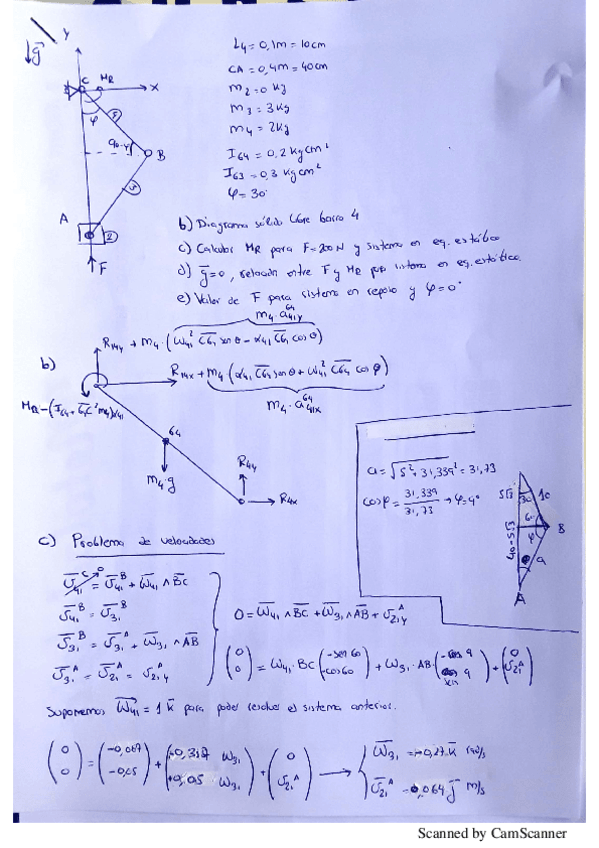 ↓g⃗
Y
C
MR
X
φ
4
90-φ
B
3
A
2
↑F
L4 = 0,1m = 10cm
CA = 0,4m = 40cm
m2 = 0 kg
m3 = 3kg
m4 = 2kg
IG4 = 0,2 kgcm²
IG3 = 0,3 kgcm²
φ = 30°
b) Diagrama sólido libre barra 4
c) Calcular MR para F=200N y sistema en eq. estático
d) g⃗=0, relación entre F y MR para sistema en eq. estático.
e) Valor de F para sistema en reposo y φ=0°
m4·a41y^G4
b)
R14y + m4·(ω41² CG4 sen θ - α41 CG4 cos θ)
R14x + m4·(α41 CG4 sen θ + ω41² CG4 cos φ)
m4·a41x^G4
MR-(IG4 + G4C² m4)α41
G4
m4·g
R4y
R4x
a = √(5² + 31,339²) = 31,73
cos φ = 31,339 / 31,73 → φ = 9°
5√3
30
10
60
φ
B
40-5√3
a
A
c) Problema de velocidades
v̄41^C = v̄41^B + ω̄41 ∧ BC
v̄41^B = v̄31^B
v̄31^B = v̄31^A + ω̄31 ∧ AB
v̄31^A = v̄21^A = v21y
0 = ω̄41 ∧ BC + ω̄31 ∧ AB + v21y^A
(0 0) = ω41·BC (-sen 60 -cos 60) + ω31·AB (-cos 9 sin 9) + (0 v21^A)
Suponemos ω⃗41 = 1 k̄ para poder resolver el sistema anterior.
(0 0) = (-0,087 -0,05) + (-0,317 ω31 +0,05 ω31) + (0 v21^A) → { ω̄31 = -0,27 k̄ rad/s
v̄21^A = 0,064 j̄ m/s
Scanned by CamScanner